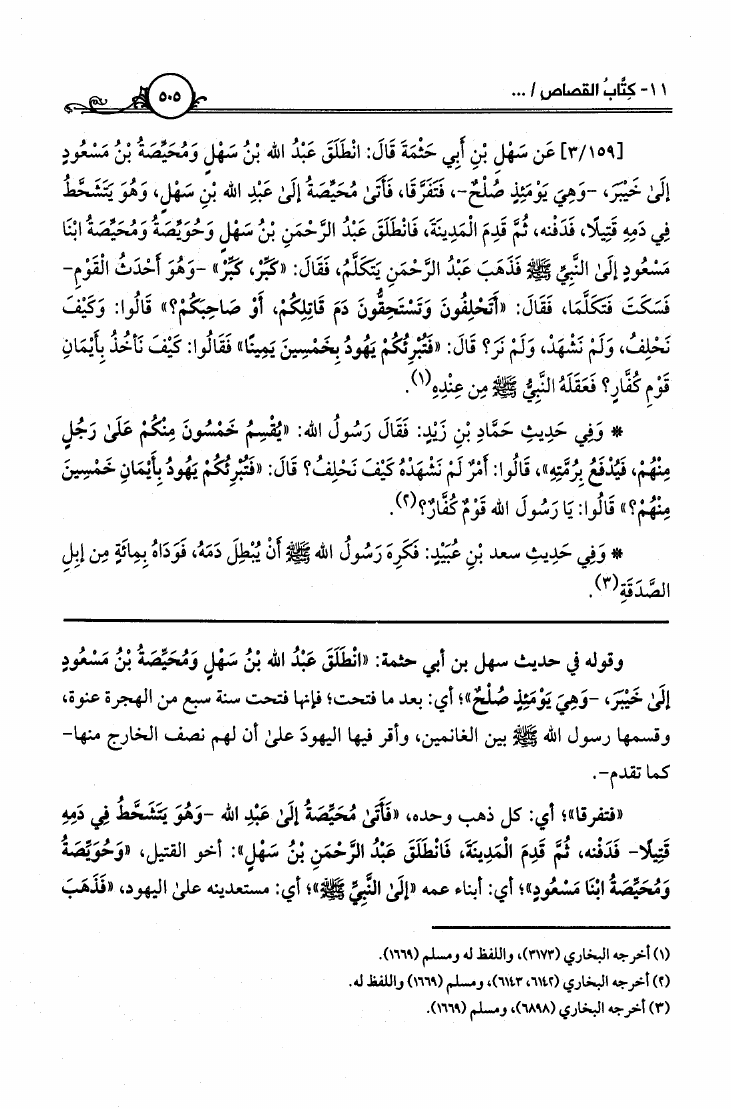 ١١- كِتَابُ القصاصِ / ...
٥٠٥
[٣/١٥٩] عَن سَهْلِ بْنِ أَبِي حَثْمَةَ قَالَ: انْطَلَقَ عَبْدُ الله بْنُ سَهْلٍ وَمُحَيِّصَةُ بْنُ مَسْعُودٍ
إِلَىٰ خَيْبَرَ، -وَهِيَ يَوْمَئِذٍ صُلْحٌ-، فَتَفَرَّقَا، فَأَتَىٰ مُحَيِّصَةُ إِلَىٰ عَبْدِ الله بْنِ سَهْلٍ، وَهُوَ يَتَشَحَّطُ
فِي دَمِهِ قَتِيلًا، فَدَفَنه، ثُمَّ قَدِمَ الْمَدِينَةَ، فَانْطَلَقَ عَبْدُ الرَّحْمَنِ بْنُ سَهْلٍ وَحُوَيِّصَةُ وَمُحَيِّصَةُ ابْنَا
مَسْعُودٍ إِلَىٰ النَّبِيِّ ﷺ فَذَهَبَ عَبْدُ الرَّحْمَنِ يَتَكَلَّمُ، فَقَالَ: «كَبِّرْ، كَبِّرْ» -وَهُوَ أَحْدَثُ الْقَوْمِ-
فَسَكَتَ فَتَكَلَّمَا، فَقَالَ: «أَتَحْلِفُونَ وَتَسْتَحِقُّونَ دَمَ قَاتِلِكُمْ، أَوْ صَاحِبَكُمْ؟» قَالُوا: وَكَيْفَ
نَحْلِفُ، وَلَمْ نَشْهَدْ، وَلَمْ نَرَ؟ قَالَ: «فَتُبْرِئُكُمْ يَهُودُ بِخَمْسِينَ يَمِينًا» فَقَالُوا: كَيْفَ نَأْخُذُ بِأَيْمَانِ
قَوْمٍ كُفَّارٍ؟ فَعَقَلَهُ النَّبِيُّ ﷺ مِن عِنْدِهِ(١).
* وَفِي حَدِيثِ حَمَّادِ بْنِ زَيْدٍ: فَقَالَ رَسُولُ الله: «يُقْسِمُ خَمْسُونَ مِنْكُمْ عَلَىٰ رَجُلٍ
مِنْهُمْ، فَيُدْفَعُ بِرُمَّتِهِ»، قَالُوا: أَمْرٌ لَمْ نَشْهَدْهُ كَيْفَ نَحْلِفُ؟ قَالَ: «فَتُبْرِئُكُمْ يَهُودُ بِأَيْمَانِ خَمْسِينَ
مِنْهُمْ؟» قَالُوا: يَا رَسُولَ الله قَوْمٌ كُفَّارٌ؟(٢).
* وَفِي حَدِيثِ سعد بْنِ عُبَيْدٍ: فَكَرِهَ رَسُولُ الله ﷺ أَنْ يُبْطِلَ دَمَهُ، فَوَدَاهُ بِمِائَةٍ مِن إِبِلِ
الصَّدَقَةِ(٣).
وقوله في حديث سهل بن أبي حثمة: «انْطَلَقَ عَبْدُ الله بْنُ سَهْلٍ وَمُحَيِّصَةُ بْنُ مَسْعُودٍ
إِلَىٰ خَيْبَرَ، -وَهِيَ يَوْمَئِذٍ صُلْحٌ»؛ أي: بعد ما فتحت؛ فإنها فتحت سنة سبع من الهجرة عنوة،
وقسمها رسول الله ﷺ بين الغانمين، وأقر فيها اليهودَ علىٰ أن لهم نصف الخارج منها-
كما تقدم-.
«فتفرقا»؛ أي: كل ذهب وحده، «فَأَتَىٰ مُحَيِّصَةُ إِلَىٰ عَبْدِ الله -وَهُوَ يَتَشَحَّطُ فِي دَمِهِ
قَتِيلًا- فَدَفَنه، ثُمَّ قَدِمَ الْمَدِينَةَ، فَانْطَلَقَ عَبْدُ الرَّحْمَنِ بْنُ سَهْلٍ»: أخو القتيل، «وَحُوَيِّصَةُ
وَمُحَيِّصَةُ ابْنَا مَسْعُودٍ»؛ أي: أبناء عمه «إِلَىٰ النَّبِيِّ ﷺ»؛ أي: مستعدينه علىٰ اليهود، «فَذَهَبَ
(١) أخرجه البخاري (٣١٧٣)، واللفظ له ومسلم (١٦٦٩).
(٢) أخرجه البخاري (٦١٤٢، ٦١٤٣)، ومسلم (١٦٦٩) واللفظ له.
(٣) أخرجه البخاري (٦٨٩٨)، ومسلم (١٦٦٩).